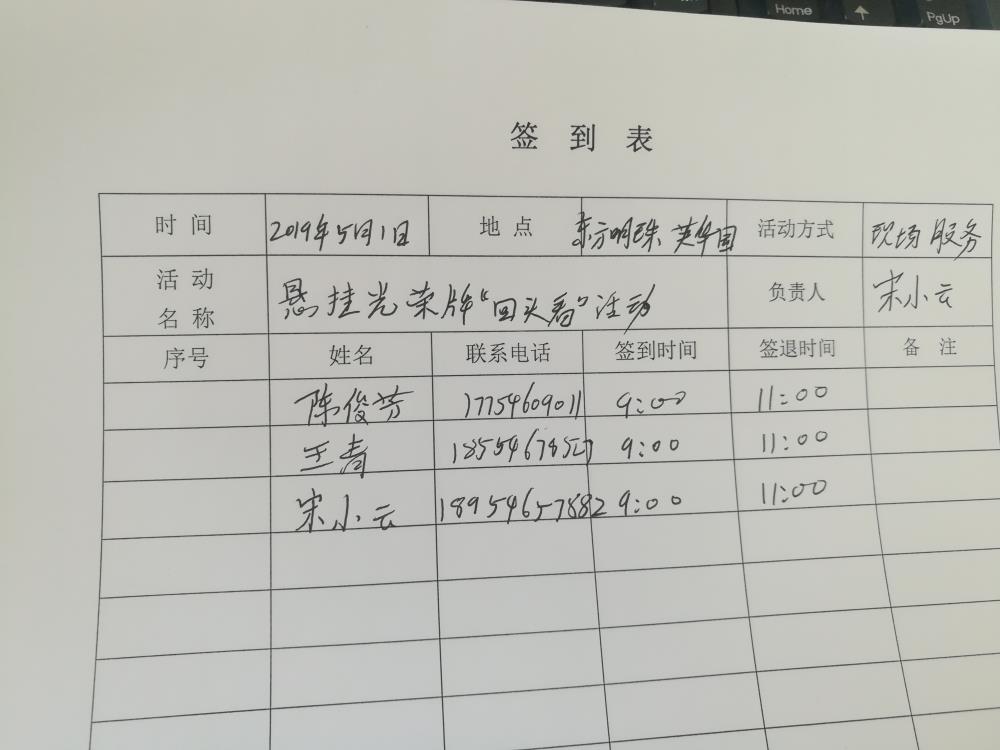 Home
PgUp
签 到 表
时 间 2019年5月1日 地 点 东方明珠 英华国 活动方式 现场服务
活 动
名 称 悬挂光荣牌"回头看"活动 负责人 宋小云
序号 姓名 联系电话 签到时间 签退时间 备 注
陈俊芳 17754609011 9:00 11:00
王青 9:00 11:00
宋小云 18954657882 9:00 11:00